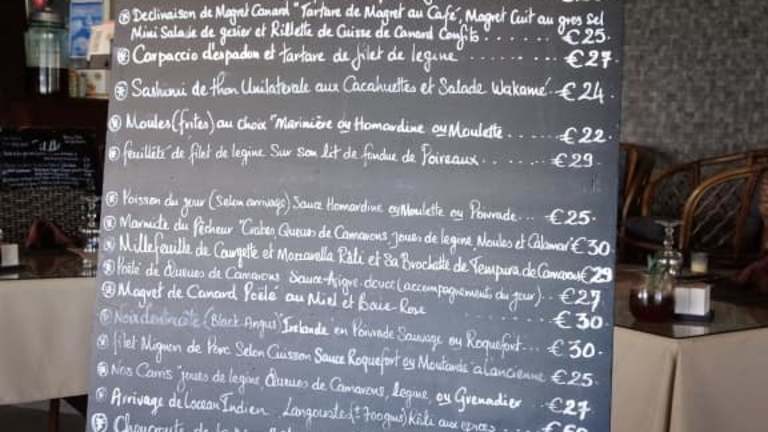 Declinaison de Magret Canard "Tartare de Magret au Café", Magret Cuit au gros Sel
Mini Salade de gesier et Rillette de Cuisse de Canard Confits ...... €25.
Carpaccio d'espadon et tartare de filet de legine ........ €27
Sashimi de thon Unilaterale aux Cacahuettes et Salade Wakamé. €24
Moules (frites) au choix "Marinière ou Homardine ou Moulette .... €22
feuilleté de filet de legine Sur son lit de fondue de Poireaux...... €29
Poisson du jour (Selon arrivage) Sauce Homardine ou Moulette ou Poivrade... €25.
Marmite du Pêcheur "Crabes Queues de Camarons, joues de legine, Moules et Calamar €30
Millefeuille de Courgette et Mozzarella Rôti et Sa Brochette de Tempura de Camarons €29
Poêlé de Queues de Camarons Sauce Aigre-douce (accompagnements du jour)... €27
Magret de Canard Poêlé au Miel et Baie Rose €30
(Black Angus) Irelande en Poivrade Sauvage ou Roquefort... €30.
filet Mignon de Porc Selon Cuisson Sauce Roquefort ou Moutarde a l'ancienne €25
Nos Carris "joues de legine, Queues de Camarons, legine, ou Grenadier €27
Arrivage de Locean Indien . Langouste (± 700gms) Rôti aux epices ..
Choucroute de la